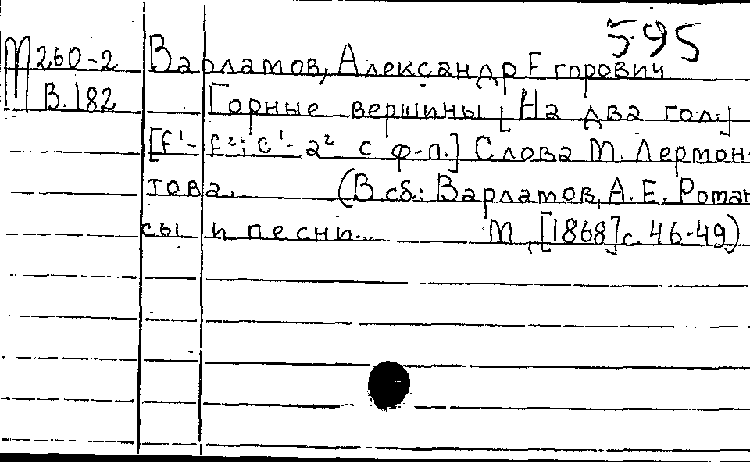 595
М 260-2 Варламов, Александр Егорович
В.182 Горные вершины [На два гол.]
[f¹-f²; c¹-a² с ф-п.] Слова М. Лермон-
това. (В сб.: Варламов, А. Е. Роман
сы и песни... М., [1868] с. 46-49)